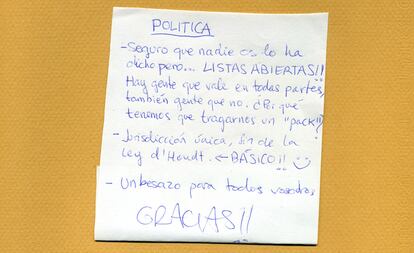 POLITICA
- Seguro que nadie os lo ha
dicho pero... LISTAS ABIERTAS!!
Hay gente que vale en todas partes,
también gente que no. ¿Por qué
tenemos que tragarnos un "pack"?
- Jurisdicción única, fin de la
Ley d'Hondt. ← BÁSICO!! :)
- Un besazo para todos vosotros
GRACIAS!!